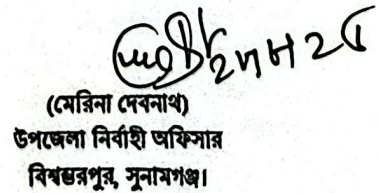 (মেরিনা দেবনাথ)
উপজেলা নির্বাহী অফিসার
বিশ্বম্ভরপুর, সুনামগঞ্জ।